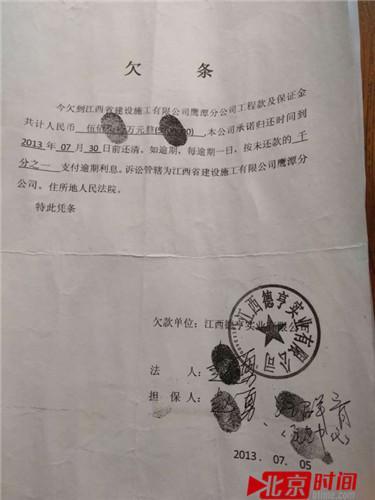 欠 条
今欠到江西省建设施工有限公司鹰潭分公司工程款及保证金
共计人民币 伍佰 万元整 00），本公司承诺归还时间到
2013 年 07 月 30 日前还清。如逾期，每逾期一日，按未还款的 千
分之一 支付逾期利息。诉讼管辖为江西省建设施工有限公司鹰潭分
公司。住所地人民法院。
特此凭条
欠款单位：江西德亨实业有限公司
江西德亨实业有限公司
法 人： 勇
担 保 人： 勇、
2013 . 07 . 05
北京时间
btime.com